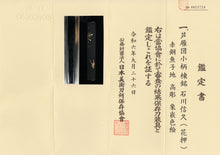 鑑定書
一、芦雁図小柄 棟銘 石川信久(花押)
赤銅魚子地 高彫 象嵌色絵
右は当協会に於て審査の結果保存刀装具と
鑑定しこれを証する
令和六年九月二十六日
公益財団法人 日本美術刀剣保存協会